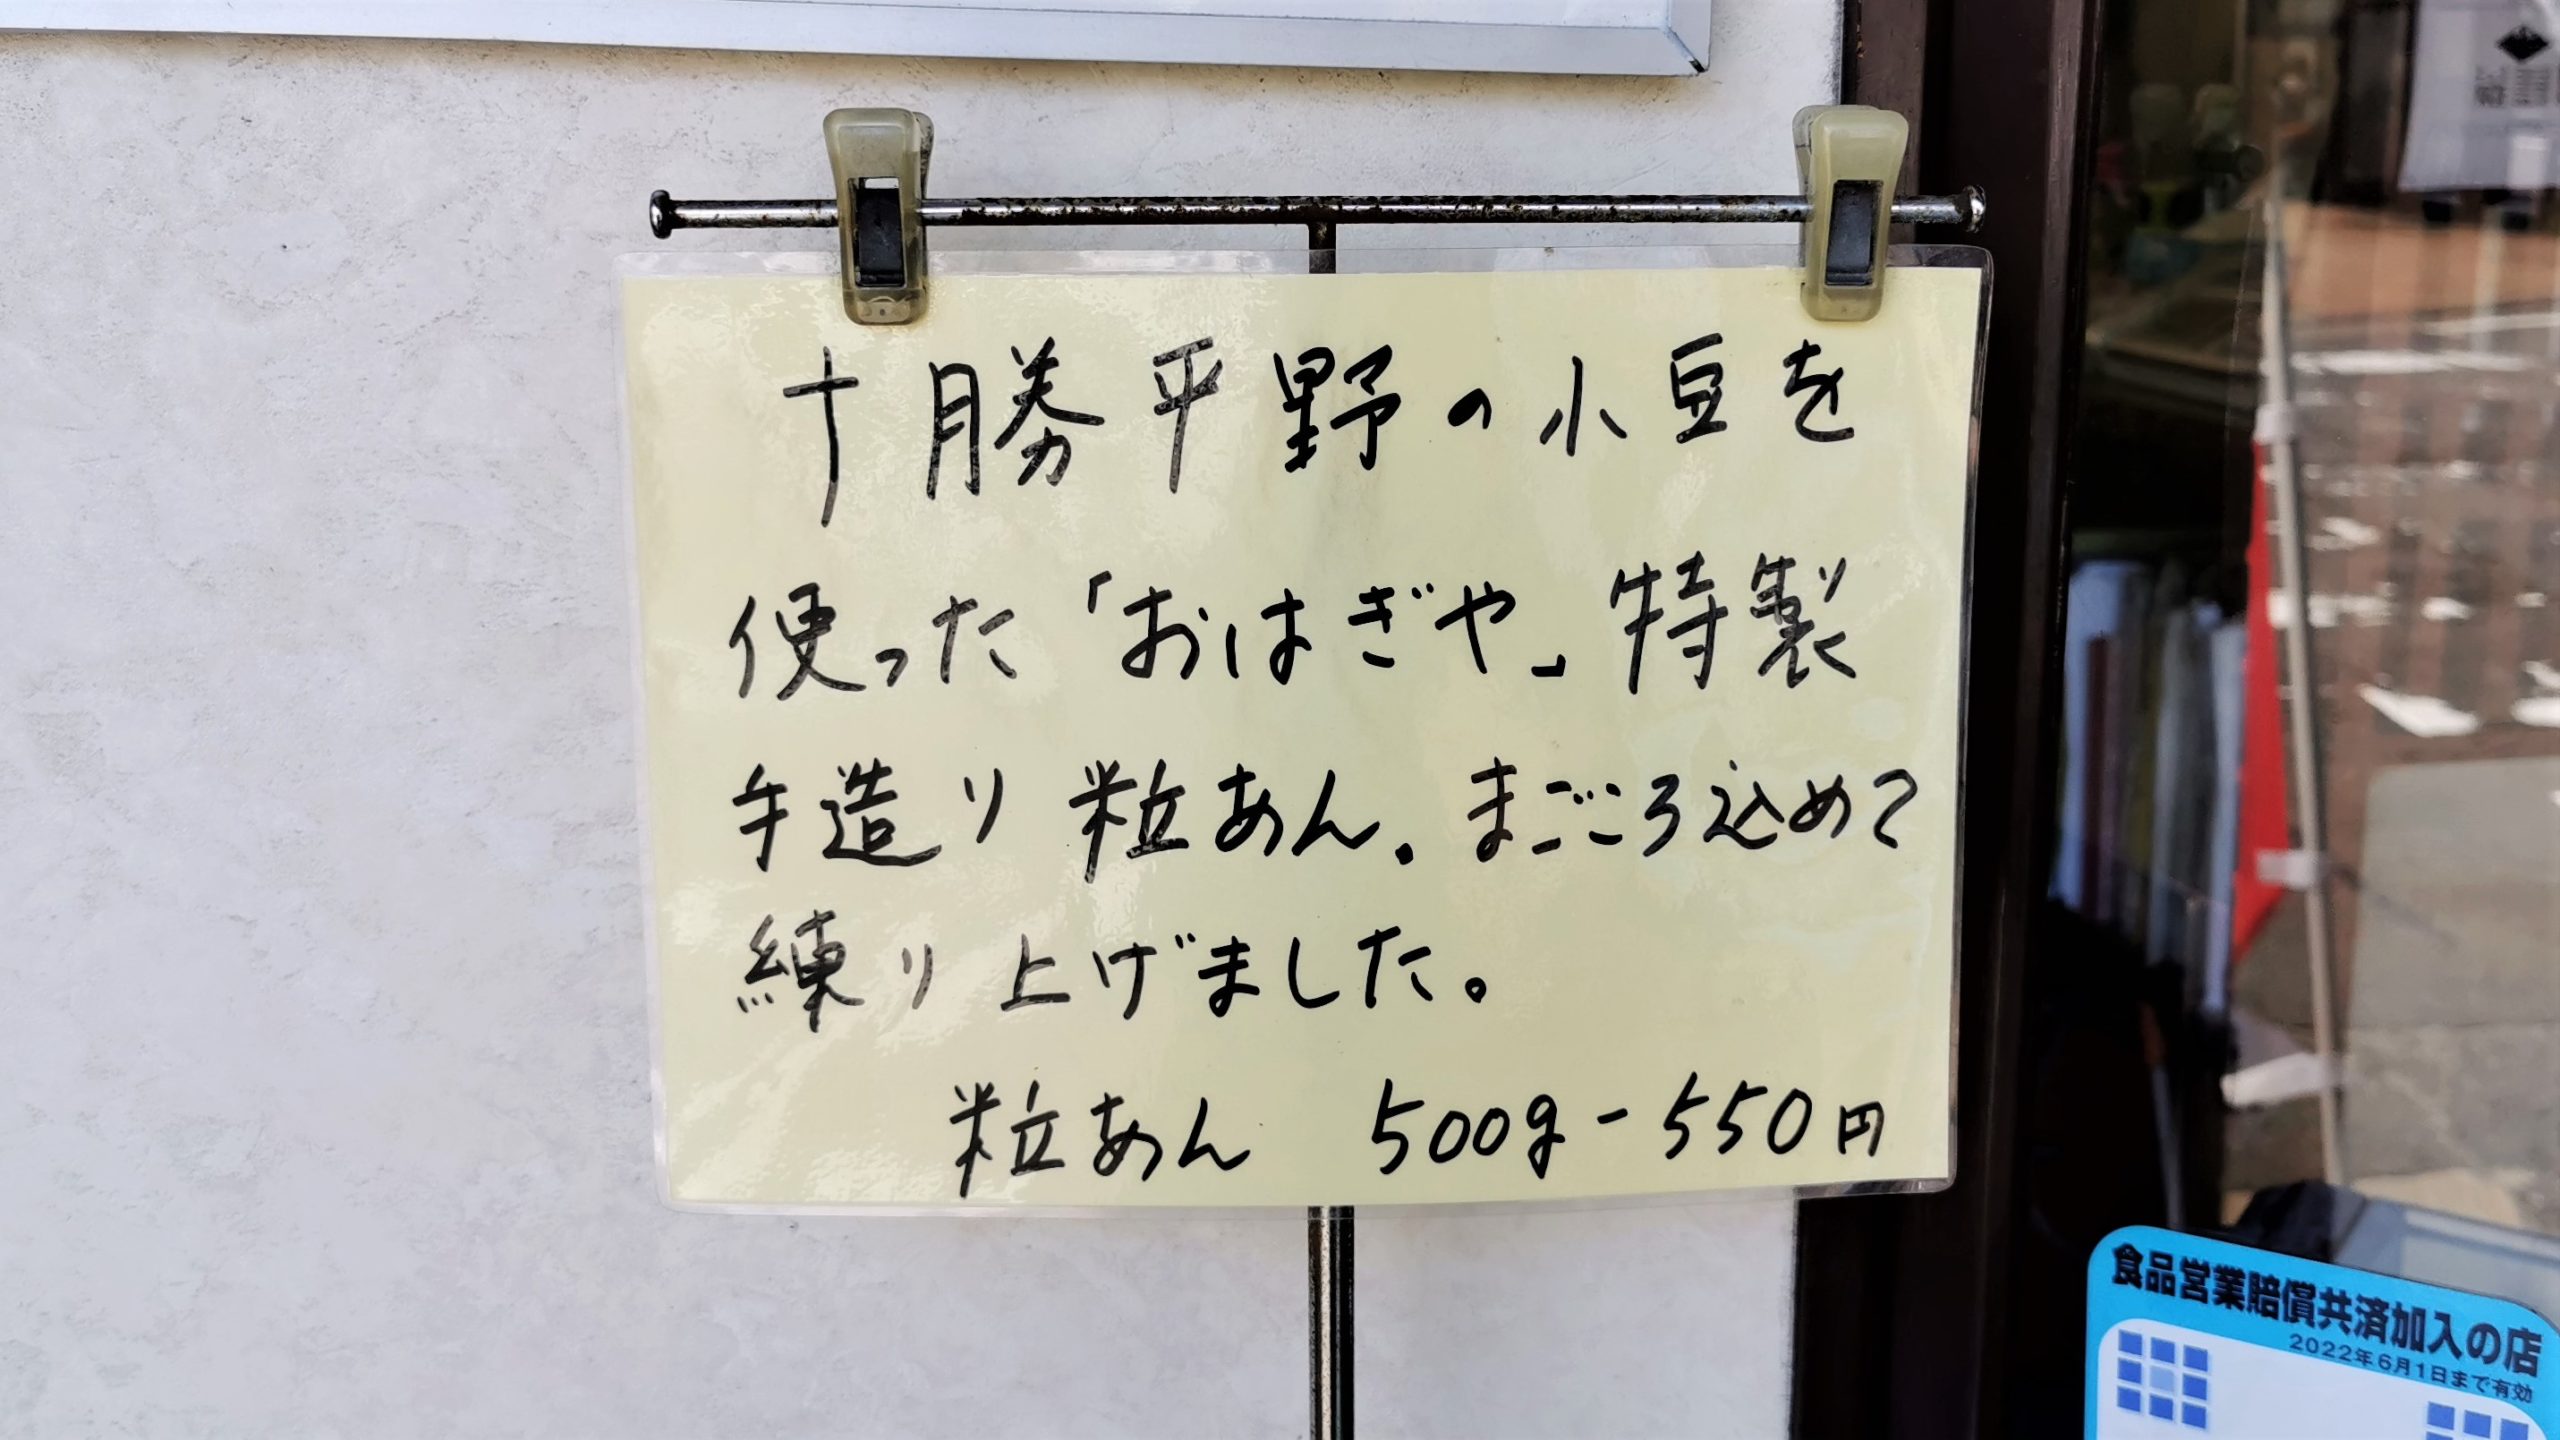 十勝平野の小豆を
使った「おはぎや」特製
手造り粒あん。まごころ込めて
練り上げました。
粒あん 500g-550円
食品営業賠償共済加入の店
2022年6月1日まで有効